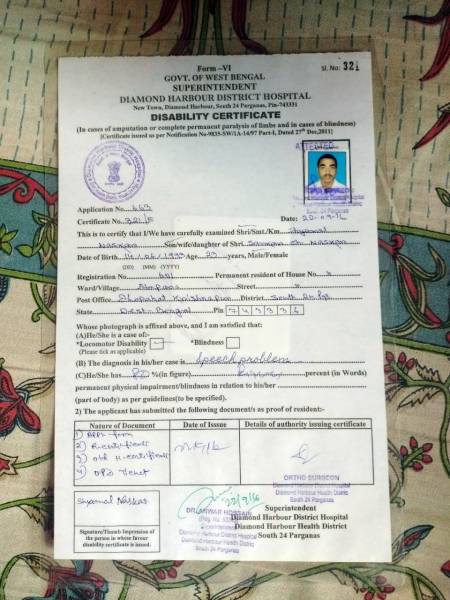 Form -VI
Sl. No: 321
GOVT. OF WEST BENGAL
SUPERINTENDENT
DIAMOND HARBOUR DISTRICT HOSPITAL
New Town, Diamond Harbour, South 24 Parganas, Pin-743331
DISABILITY CERTIFICATE
(In cases of amputation or complete permanent paralysis of limbs and in cases of blindness)
[Certificate issued as per Notification No-9835-SW/1A-14/97 Part-I, Dated 27th Dec, 2011]
ATTESTED
Application No. 463
Certificate No. 321/S
Date: 22-09-16
This is to certify that I/We have carefully examined Shri/Smt./Km. Shyamal
Naskar Son/wife/daughter of Shri. Naskar
Date of Birth 14/06/1993 Age 23 years, Male/Female
(DD) (MM) (YYYY)
Registration No. 461 Permanent resident of House No.
Ward/Village Street
Post Office Krishnapur District South 24 Pgs
State West Bengal Pin 743336
Whose photograph is affixed above, and I am satisfied that:
(A)He/She is a case of:-
*Locomotor Disability *Blindness
(Please tick as applicable)
(B) The diagnosis in his/her case is Speech problem
(C)He/She has %(in figure) percent (in Words)
permanent physical impairment/blindness in relation to his/her
(part of body) as per guidelines(to be specified).
2) The applicant has submitted the following document/s as proof of resident:-
Nature of Document Date of Issue Details of authority issuing certificate
1) APPl. form
2) R-certificate
3) old H-certificate
4) OPD Ticket
ORTHO SURGEON
Diamond Harbour District Hospital
Diamond Harbour Health District
South 24 Parganas
Shyamal Naskar
Signature/Thumb Impression
of the person in whose favour
disability certificate is issued.
22/9/16
DR. ANWAR HOSSAIN
Superintendent
Diamond Harbour District Hospital
Diamond Harbour Health District
South 24 Parganas